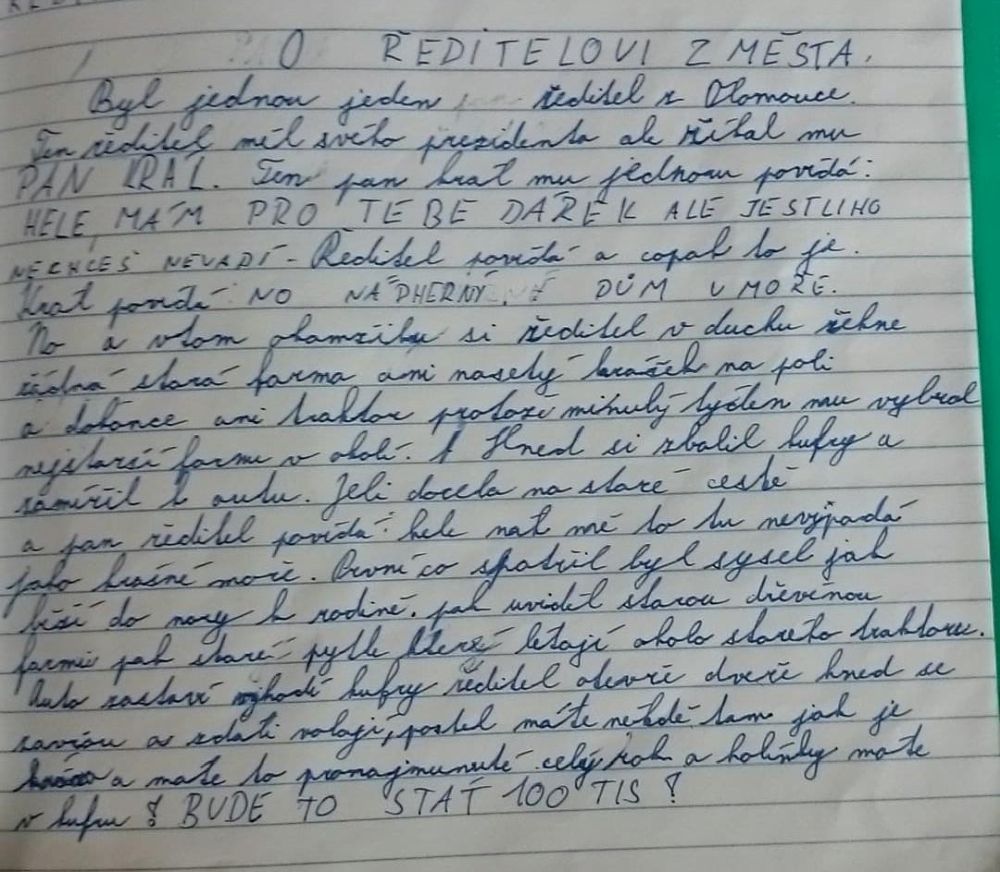 O ŘEDITELOVI Z MĚSTA.
Byl jednou jeden ředitel z Olomouce.
Ten ředitel měl svého prezidenta ale říkal mu
PAN KRÁL. Ten pan král mu jednou povídá:
HELE, MÁM PRO TEBE DÁREK ALE JESTLIHO
NECHCEŠ NEVADÍ - Ředitel povídá a copak to je.
Král povídá NO NÁDHERNÝ DŮM U MOŘE.
No a vtom okamžiku si ředitel v duchu řekne
žádná stará farma ani nasetý hrášek na poli
a dokonce ani traktor protože minulý týden mu vybral
nejstarší farmu v okolí. Hned si zbalil kufry a
zamířil k autu. Jeli docela na staré cestě
a pan ředitel povídá: hele nat mě to tu nevypadá
jako krásné moře. První co spatřil byl sysel jak
běží do nory k rodině. pak uviděl starou dřevěnou
farmu pak staré pytle které létají okolo starého traktoru.
Auto zastaví vyhodí kufry ředitel otevře dveře hned se
zavřou a zdáli volají, postel máte někde tam jak je
a máte to pronajmunuté celý rok a holínky máte
v kufru ! BUDE TO STÁT 100 TIS !